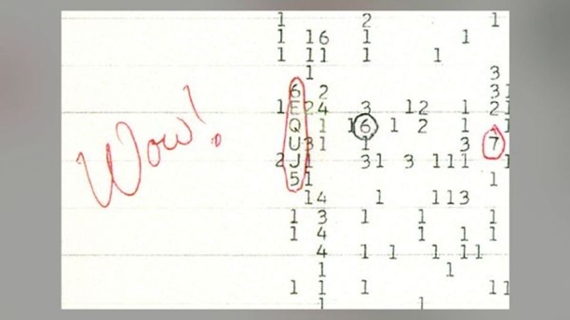 1 2 1
1 16 1 1
1 11 1 1
1 3
6 2 31
1E24 3 12 1 21
Q 1 16 1 2 1 1
Wow!
U31 1 3 7
2J1 31 3 111 1
51 1
14 1 113
1 3 1 1 1
1 4 1 1 1
4 1 1 1 11
1 1
1 1 1 11
1 1